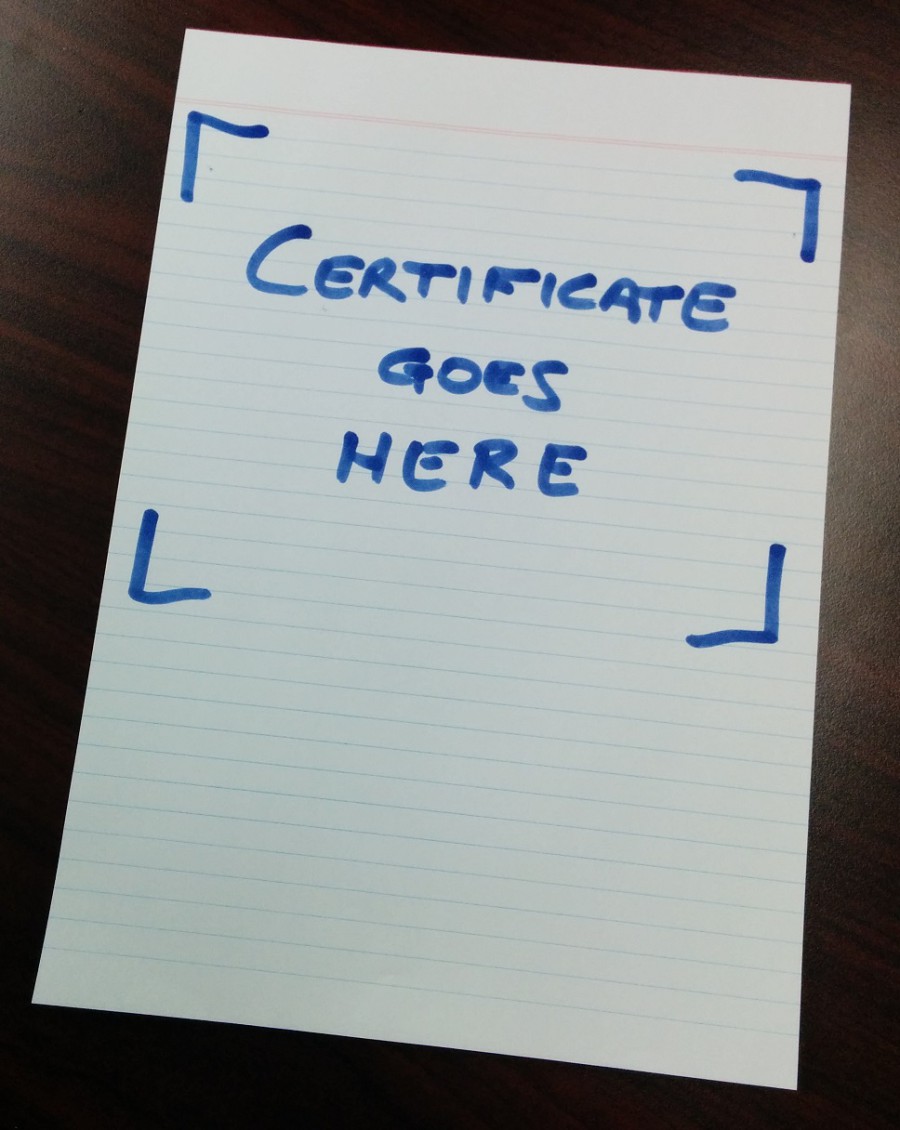 CERTIFICATE
GOES
HERE